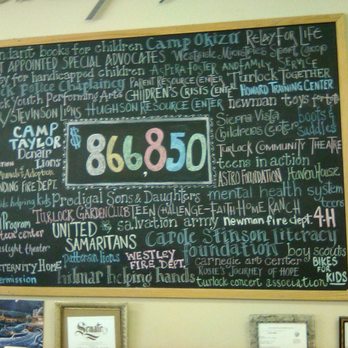 books for children CAMP OKIZU RELAY FOR LIFE
APPOINTED SPECIAL ADVOCATES
for handicapped children ASPIRA FOSTER AND FAMILY SERVICE
Police Chaplaincy PARENT RESOURCE CENTER TURLOCK TOGETHER
Youth Performing Arts CHILDREN'S CRISIS CENTER HOWARD TRAINING CENTER
STEVINSON LIONS HUGHSON RESOURCE CENTER newman toys for tots
CAMP TAYLOR
Denair Lions
$866,850
Sierra Vista Children's Center
boots & saddles
TURLOCK COMMUNITY THEATRE
teens in action
ASTRO FOUNDATION Haven House
FIRE DEPT.
kids helping kids Prodigal Sons & Daughters mental health system
Program TURLOCK GARDEN CLUB TEEN CHALLENGE - FAITH HOME RANCH teens
gaslight theater UNITED SAMARITANS salvation army newman fire dept. 4H
Patterson lions WESTLEY FIRE DEPT. Carole Stinson literacy foundation boy scouts
carnegie art center BIKES FOR KIDS
hilmar helping hands ROSIE'S JOURNEY OF HOPE
turlock concert association
Senate